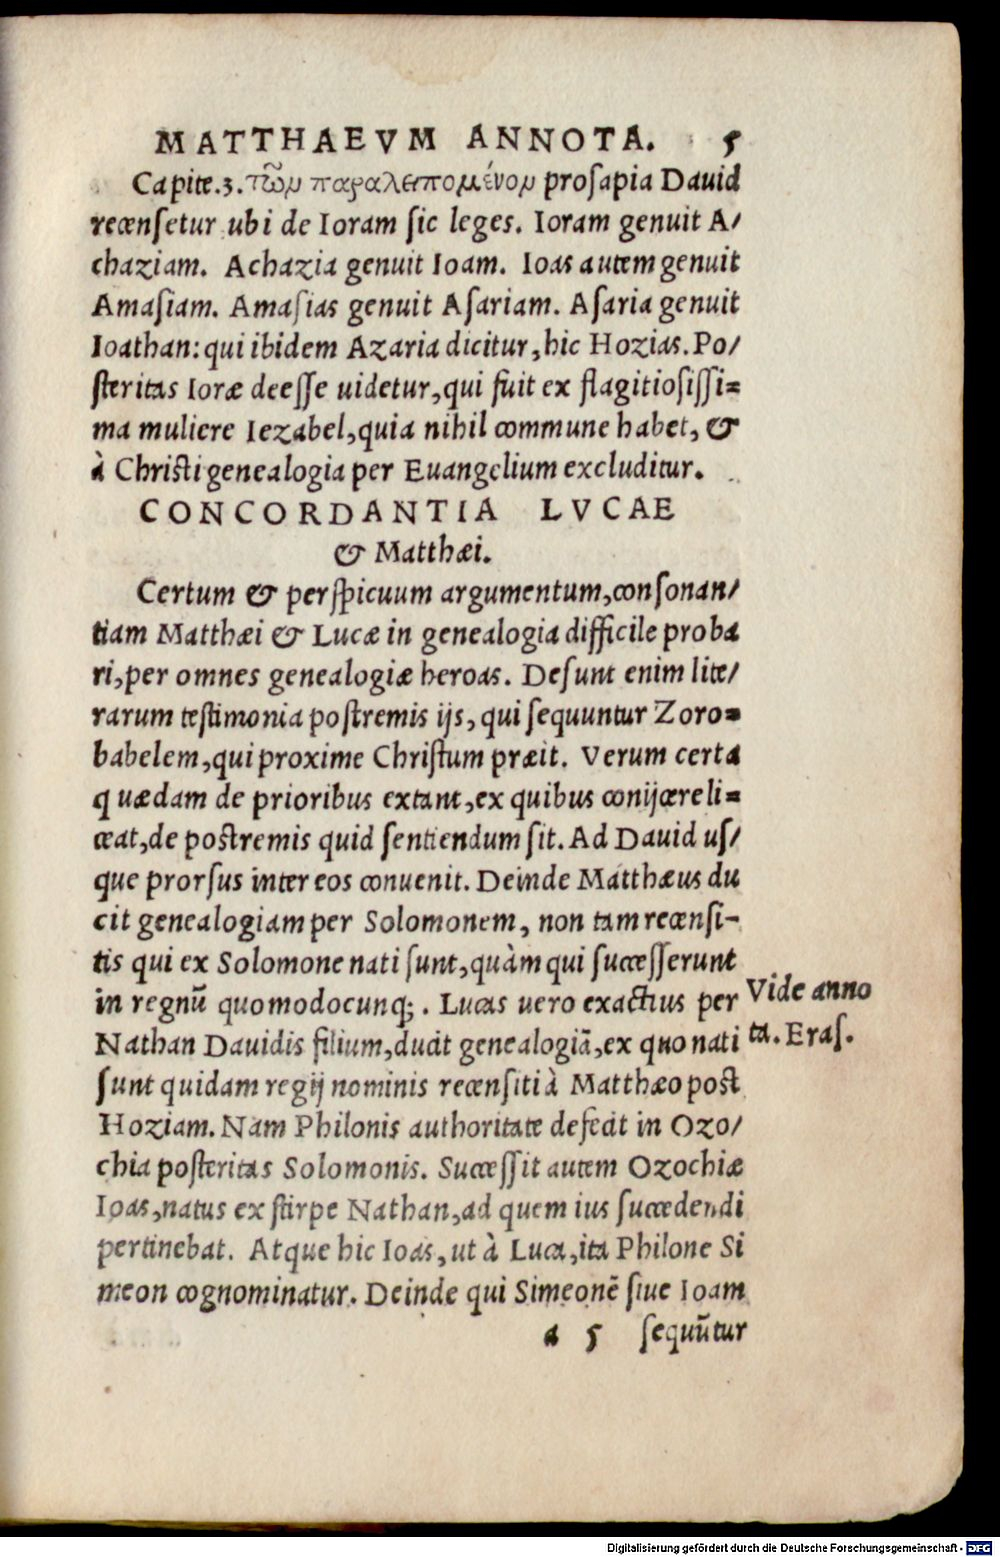 MATTHAEVM ANNOTA. 5
Capite.3.τῶν παραλειπομένον prosapia Dauid
recensetur ubi de Ioram sic leges. Ioram genuit A/
chaziam. Achazia genuit Ioam. Ioas autem genuit
Amasiam. Amasias genuit Asariam. Asaria genuit
Ioathan: qui ibidem Azaria dicitur, hic Hozias. Po/
steritas Ioræ deesse uidetur, qui fuit ex flagitiosissi=
ma muliere Iezabel, quia nihil commune habet, &
à Christi genealogia per Euangelium excluditur.
CONCORDANTIA LVCAE
& Matthæi.
Certum & perspicuum argumentum, consonan/
tiam Matthæi & Lucæ in genealogia difficile proba
ri, per omnes genealogiæ heroas. Desunt enim lite/
rarum testimonia postremis ijs, qui sequuntur Zoro=
babelem, qui proxime Christum præit. Verum certa
quædam de prioribus extant, ex quibus conijcere li=
ceat, de postremis quid sentiendum sit. Ad Dauid us/
que prorsus inter eos conuenit. Deinde Matthæus du
cit genealogiam per Solomonem, non tam recensi-
tis qui ex Solomone nati sunt, quàm qui successerunt
in regnũ quomodocunq;. Lucas uero exactius per
Nathan Dauidis filium, ducit genealogiã, ex quo nati
sunt quidam regij nominis recensiti à Matthæo post
Hoziam. Nam Philonis authoritate defecit in Ozo/
chia posteritas Solomonis. Successit autem Ozochiæ
Ioas, natus ex stirpe Nathan, ad quem ius succedendi
pertinebat. Atque hic Ioas, ut à Luca, ita Philone Si
meon cognominatur. Deinde qui Simeonẽ siue Ioam
a 5 sequũtur
Vide anno
ta. Eras.
Digitalisierung gefördert durch die Deutsche Forschungsgemeinschaft - DFG